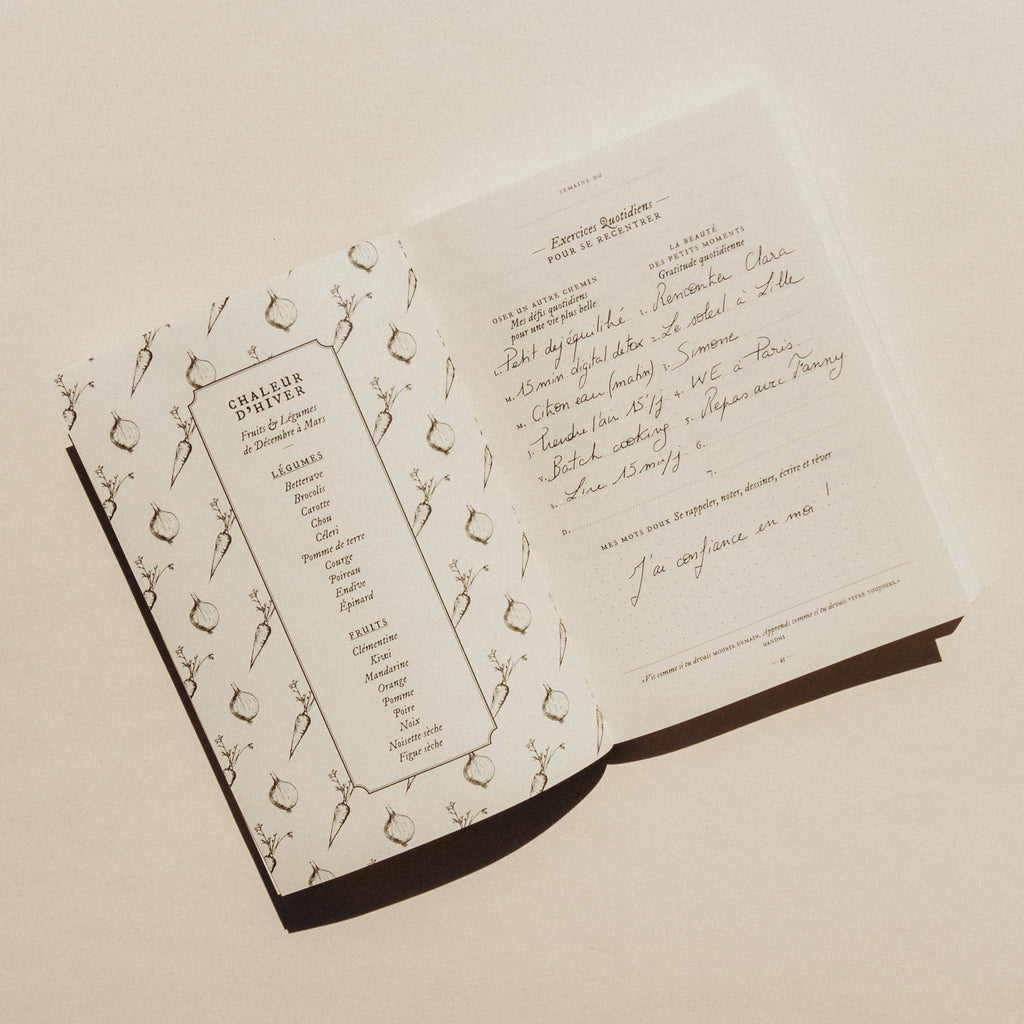 CHALEUR
D'HIVER
Fruits & Légumes
de Décembre à Mars
LÉGUMES
Betterave
Brocolis
Carotte
Chou
Céleri
Pomme de terre
Courge
Poireau
Endive
Épinard
FRUITS
Clémentine
Kiwi
Mandarine
Orange
Pomme
Poire
Noix
Noisette sèche
Figue sèche
SEMAINE DU
— Exercices Quotidiens —
POUR SE RECENTRER
OSER UN AUTRE CHEMIN
Mes défis quotidiens
pour une vie plus belle
L. Petit dej équilibé
M. 15 min digital detox
M. Citron eau (matin)
J. Prendre l'air 15'/j.
V. Batch cooking
S. Lire 15 min/j.
D.
LA BEAUTÉ
DES PETITS MOMENTS
Gratitude quotidienne
1. Rencontrer Clara
2. Le soleil à Lille
3. Simone
4. WE à Paris
5. Repas avec Fanny
6.
7.
MES MOTS DOUX Se rappeler, noter, dessiner, écrire et rêver
J'ai confiance en moi !
«Vis comme si tu devais MOURIR DEMAIN. Apprends comme si tu devais VIVRE TOUJOURS.»
GANDHI
— 45 —